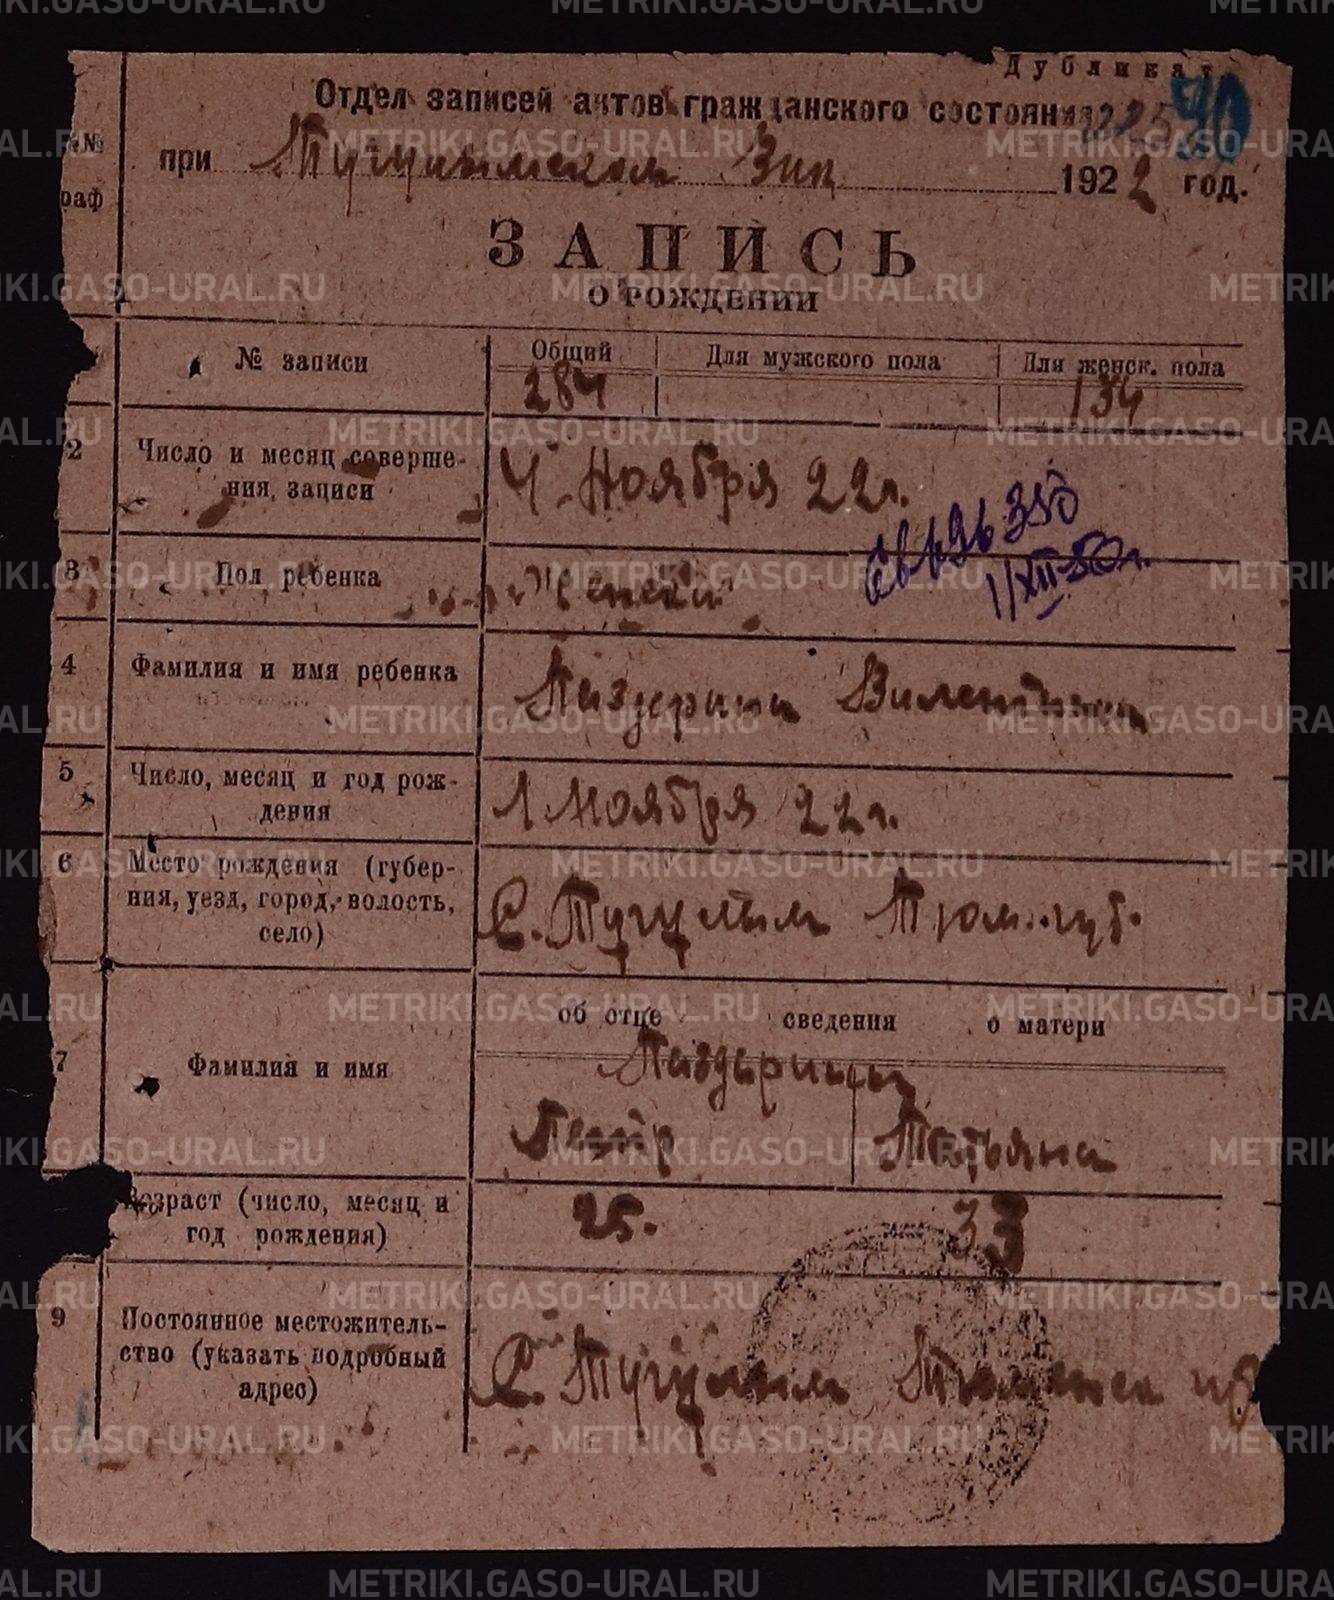 Дубликат
Отдел записей актов гражданского состояния
90
№№
граф
при Тугулымском Вик 1922 год.
ЗАПИСЬ
О РОЖДЕНИИ
№ записи
Общий Для мужского пола Для женск. пола
284 134
2 Число и месяц соверше-
ния, записи
4 Ноября 22 г.
3 Пол ребенка
Женский
Св 696350
1/XII-50 г.
4 Фамилия и имя ребенка
Паздерина Валентина
5 Число, месяц и год рож-
дения
1 Ноября 22 г.
6 Место рождения (губер-
ния, уезд, город, волость,
село)
С. Тугулым Тюм. губ.
об отце сведения о матери
7 Фамилия и имя
Паздерины
Петр Татьяна
Возраст (число, месяц и
год рождения)
25. 33
9 Постоянное местожитель-
ство (указать подробный
адрес)
С. Тугулым Тюменск губ
METRIKI.GASO-URAL.RU